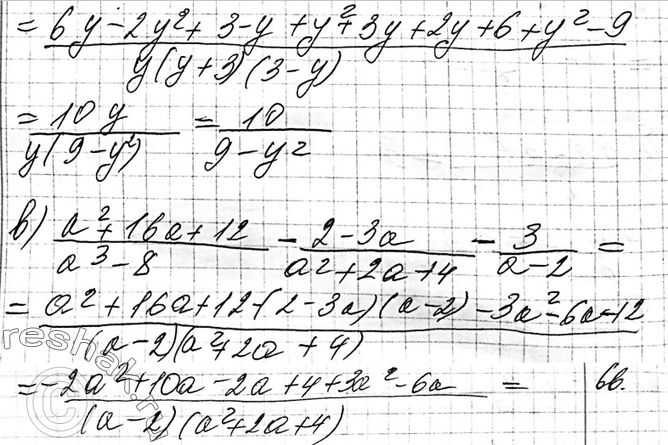 = (6y - 2y² + 3 - y + y² + 3y + 2y + 6 + y² - 9) / (y(y+3)(3-y))
= 10y / (y(9-y²)) = 10 / (9-y²)
в) (a² + 16a + 12) / (a³ - 8) - (2-3a) / (a² + 2a + 4) - 3 / (a-2) =
= (a² + 16a + 12 - (2-3a)(a-2) - 3a² - 6a - 12) / ((a-2)(a² + 2a + 4))
= (-2a² + 10a - 2a + 4 + 3a² - 6a) / ((a-2)(a² + 2a + 4)) = | 6в.